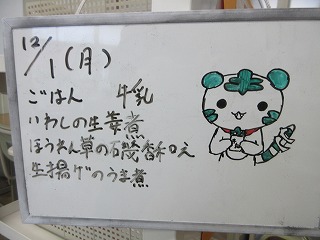 12/1(月)
ごはん 牛乳
いわしの生姜煮
ほうれん草の磯香和え
生揚げのうま煮